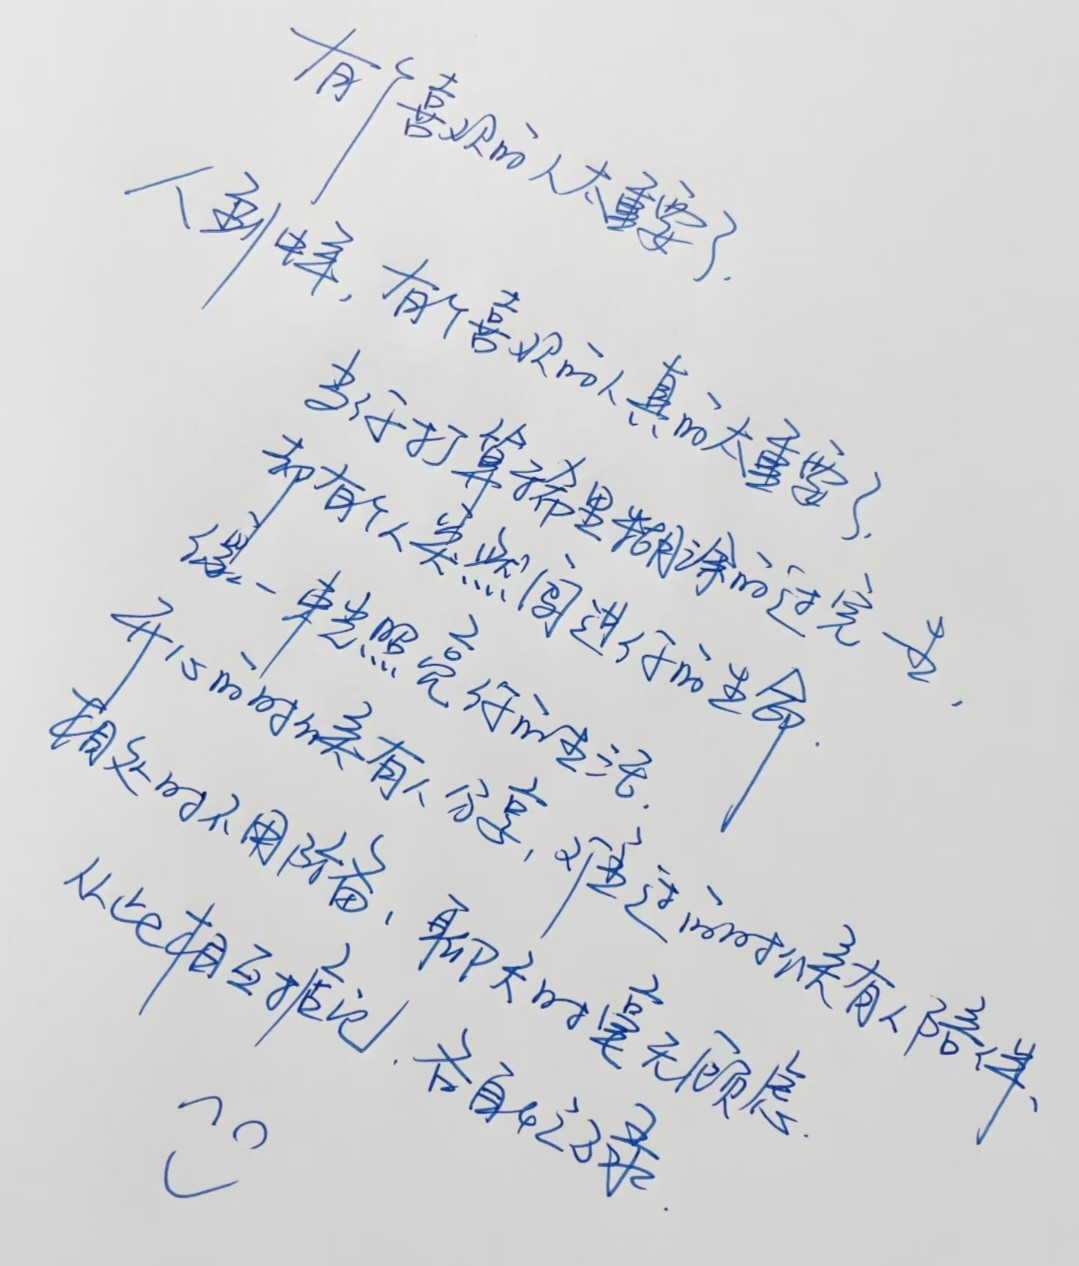 有个喜欢的人太重要了.
人到中年,有个喜欢的人真的太重要了.
当你打算稀里糊涂的过完一生.
却有个人突然闯进你的生命.
像一束光照亮你的生活.
开心的时候有人分享,难过的时候有人陪伴、
相处时不用防备、聊天时毫无顾虑.
从此相互惦记.各自安好.